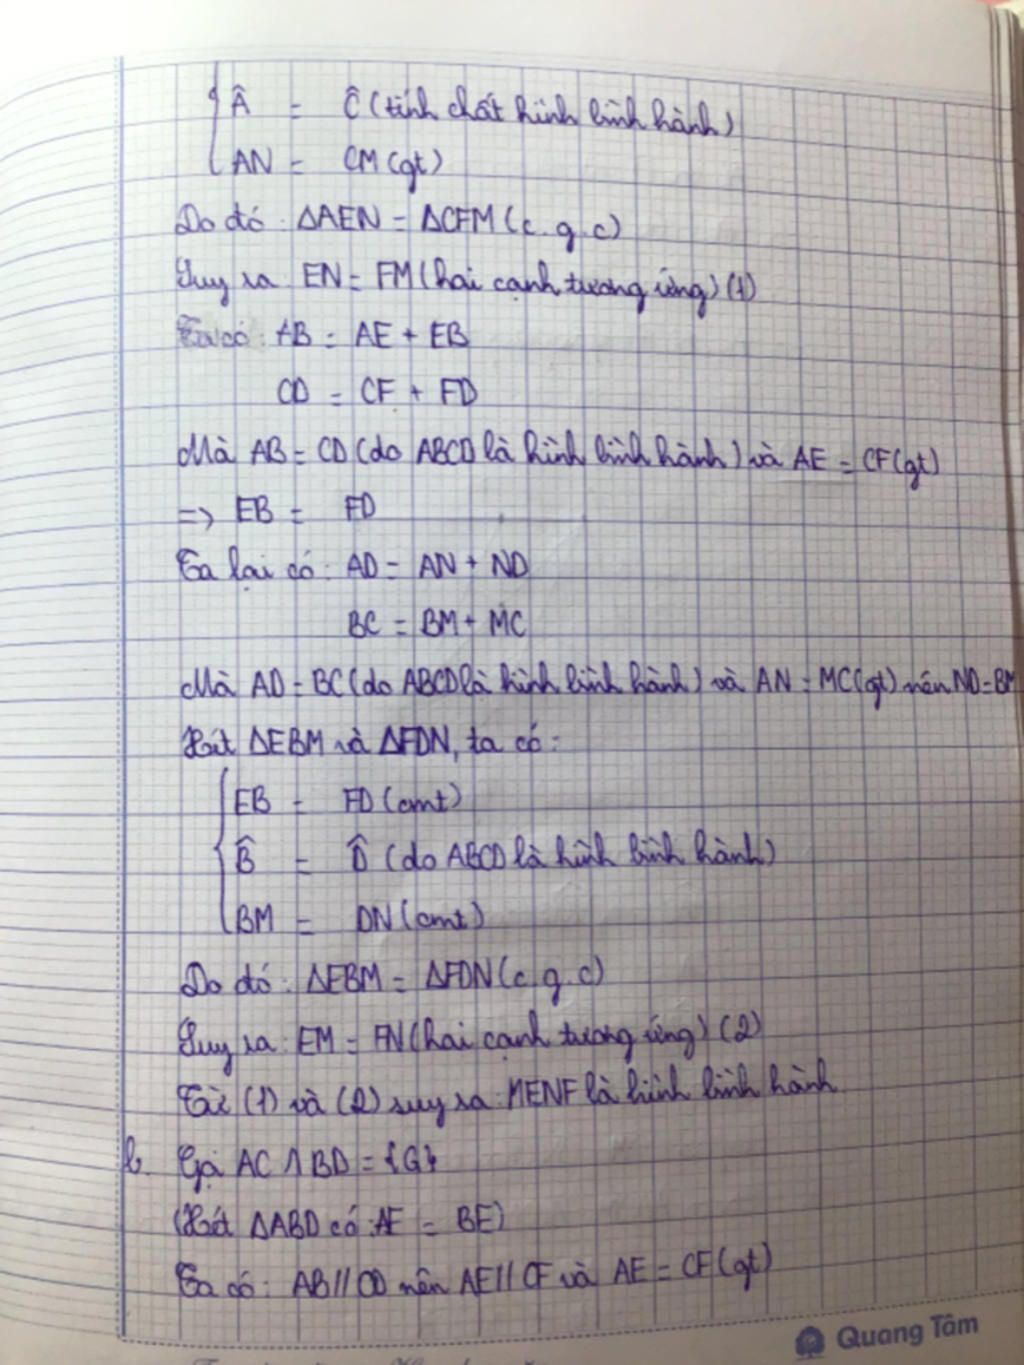 Â = Ĉ (tính chất hình bình hành)
AN = CM (gt)
Do đó: ΔAEN = ΔCFM (c.g.c)
Suy ra: EN = FM (hai cạnh tương ứng) (1)
Ta có: AB = AE + EB
CD = CF + FD
Mà AB = CD (do ABCD là hình bình hành) và AE = CF (gt)
=> EB = FD
Ta lại có: AD = AN + ND
BC = BM + MC
Mà AD = BC (do ABCD là hình bình hành) và AN = MC (gt) nên ND = BM
Xét ΔEBM và ΔFDN, ta có:
EB = FD (cmt)
B̂ = D̂ (do ABCD là hình bình hành)
BM = DN (cmt)
Do đó: ΔEBM = ΔFDN (c.g.c)
Suy ra: EM = FN (hai cạnh tương ứng) (2)
Từ (1) và (2) suy ra: MENF là hình bình hành
b. Gọi AC ∩ BD = {G}
(Xét ΔABD có: AE = BE)
Ta có: AB // CD nên AE // CF và AE = CF (gt)
Quang Tâm